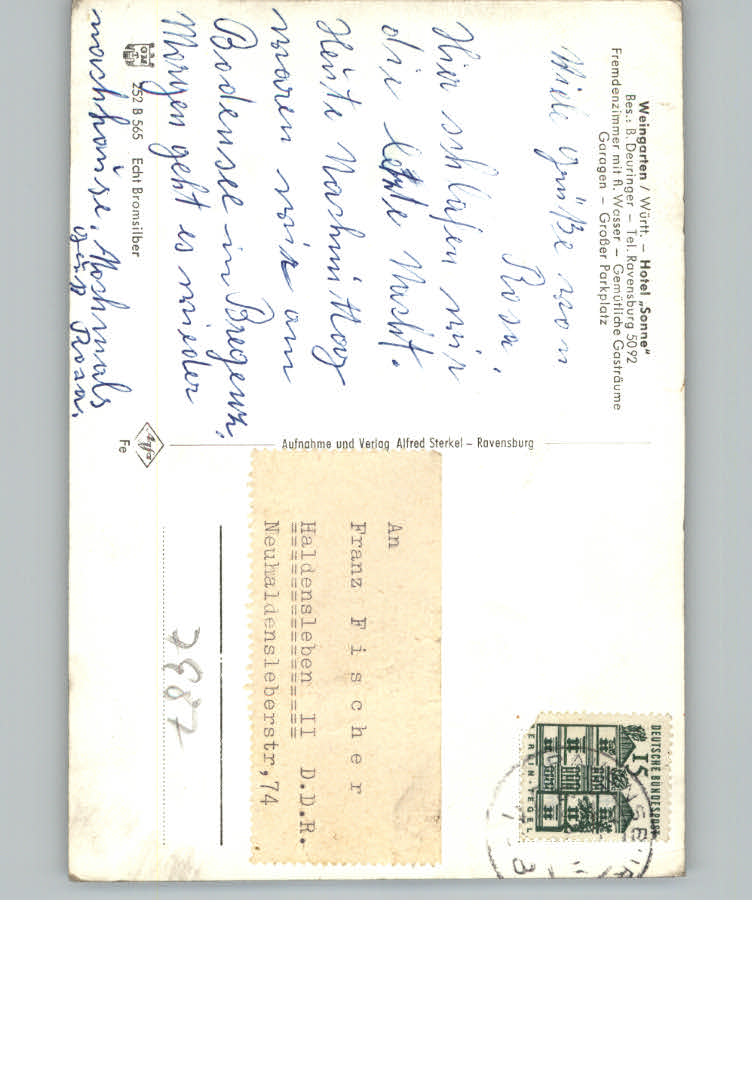 Weingarten / Württ. – Hotel „Sonne"
Bes.: B. Deuringer – Tel. Ravensburg 5092
Fremdenzimmer mit fl. Wasser – Gemütliche Gasträume
Garagen – Großer Parkplatz
Viele Grüße von
Rosa.
Hier schlafen wir
die letzte Nacht.
Heute Nachmittag
waren wir am
Bodensee in Bregenz.
Morgen geht es wieder
nachhause. Nochmals
Rosa.
252 B 565 Echt Bromsilber
Aufnahme und Verlag Alfred Sterkel – Ravensburg
Agfa
Fe
An
Franz Fischer
Haldensleben II D.D.R.
================
Neuhaldensleberstr,74
7887
DEUTSCHE BUNDESPOST
15
BERLIN-TEGEL